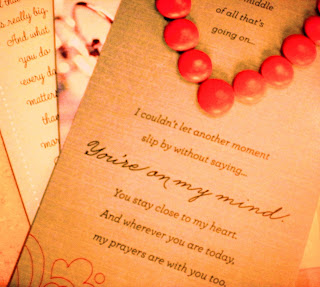 that
s really big.
And what
you do
every da
matter
than
mos
middle
of all that's
going on...
I couldn't let another moment
slip by without saying...
You're on my mind.
You stay close to my heart.
And wherever you are today,
my prayers are with you too.